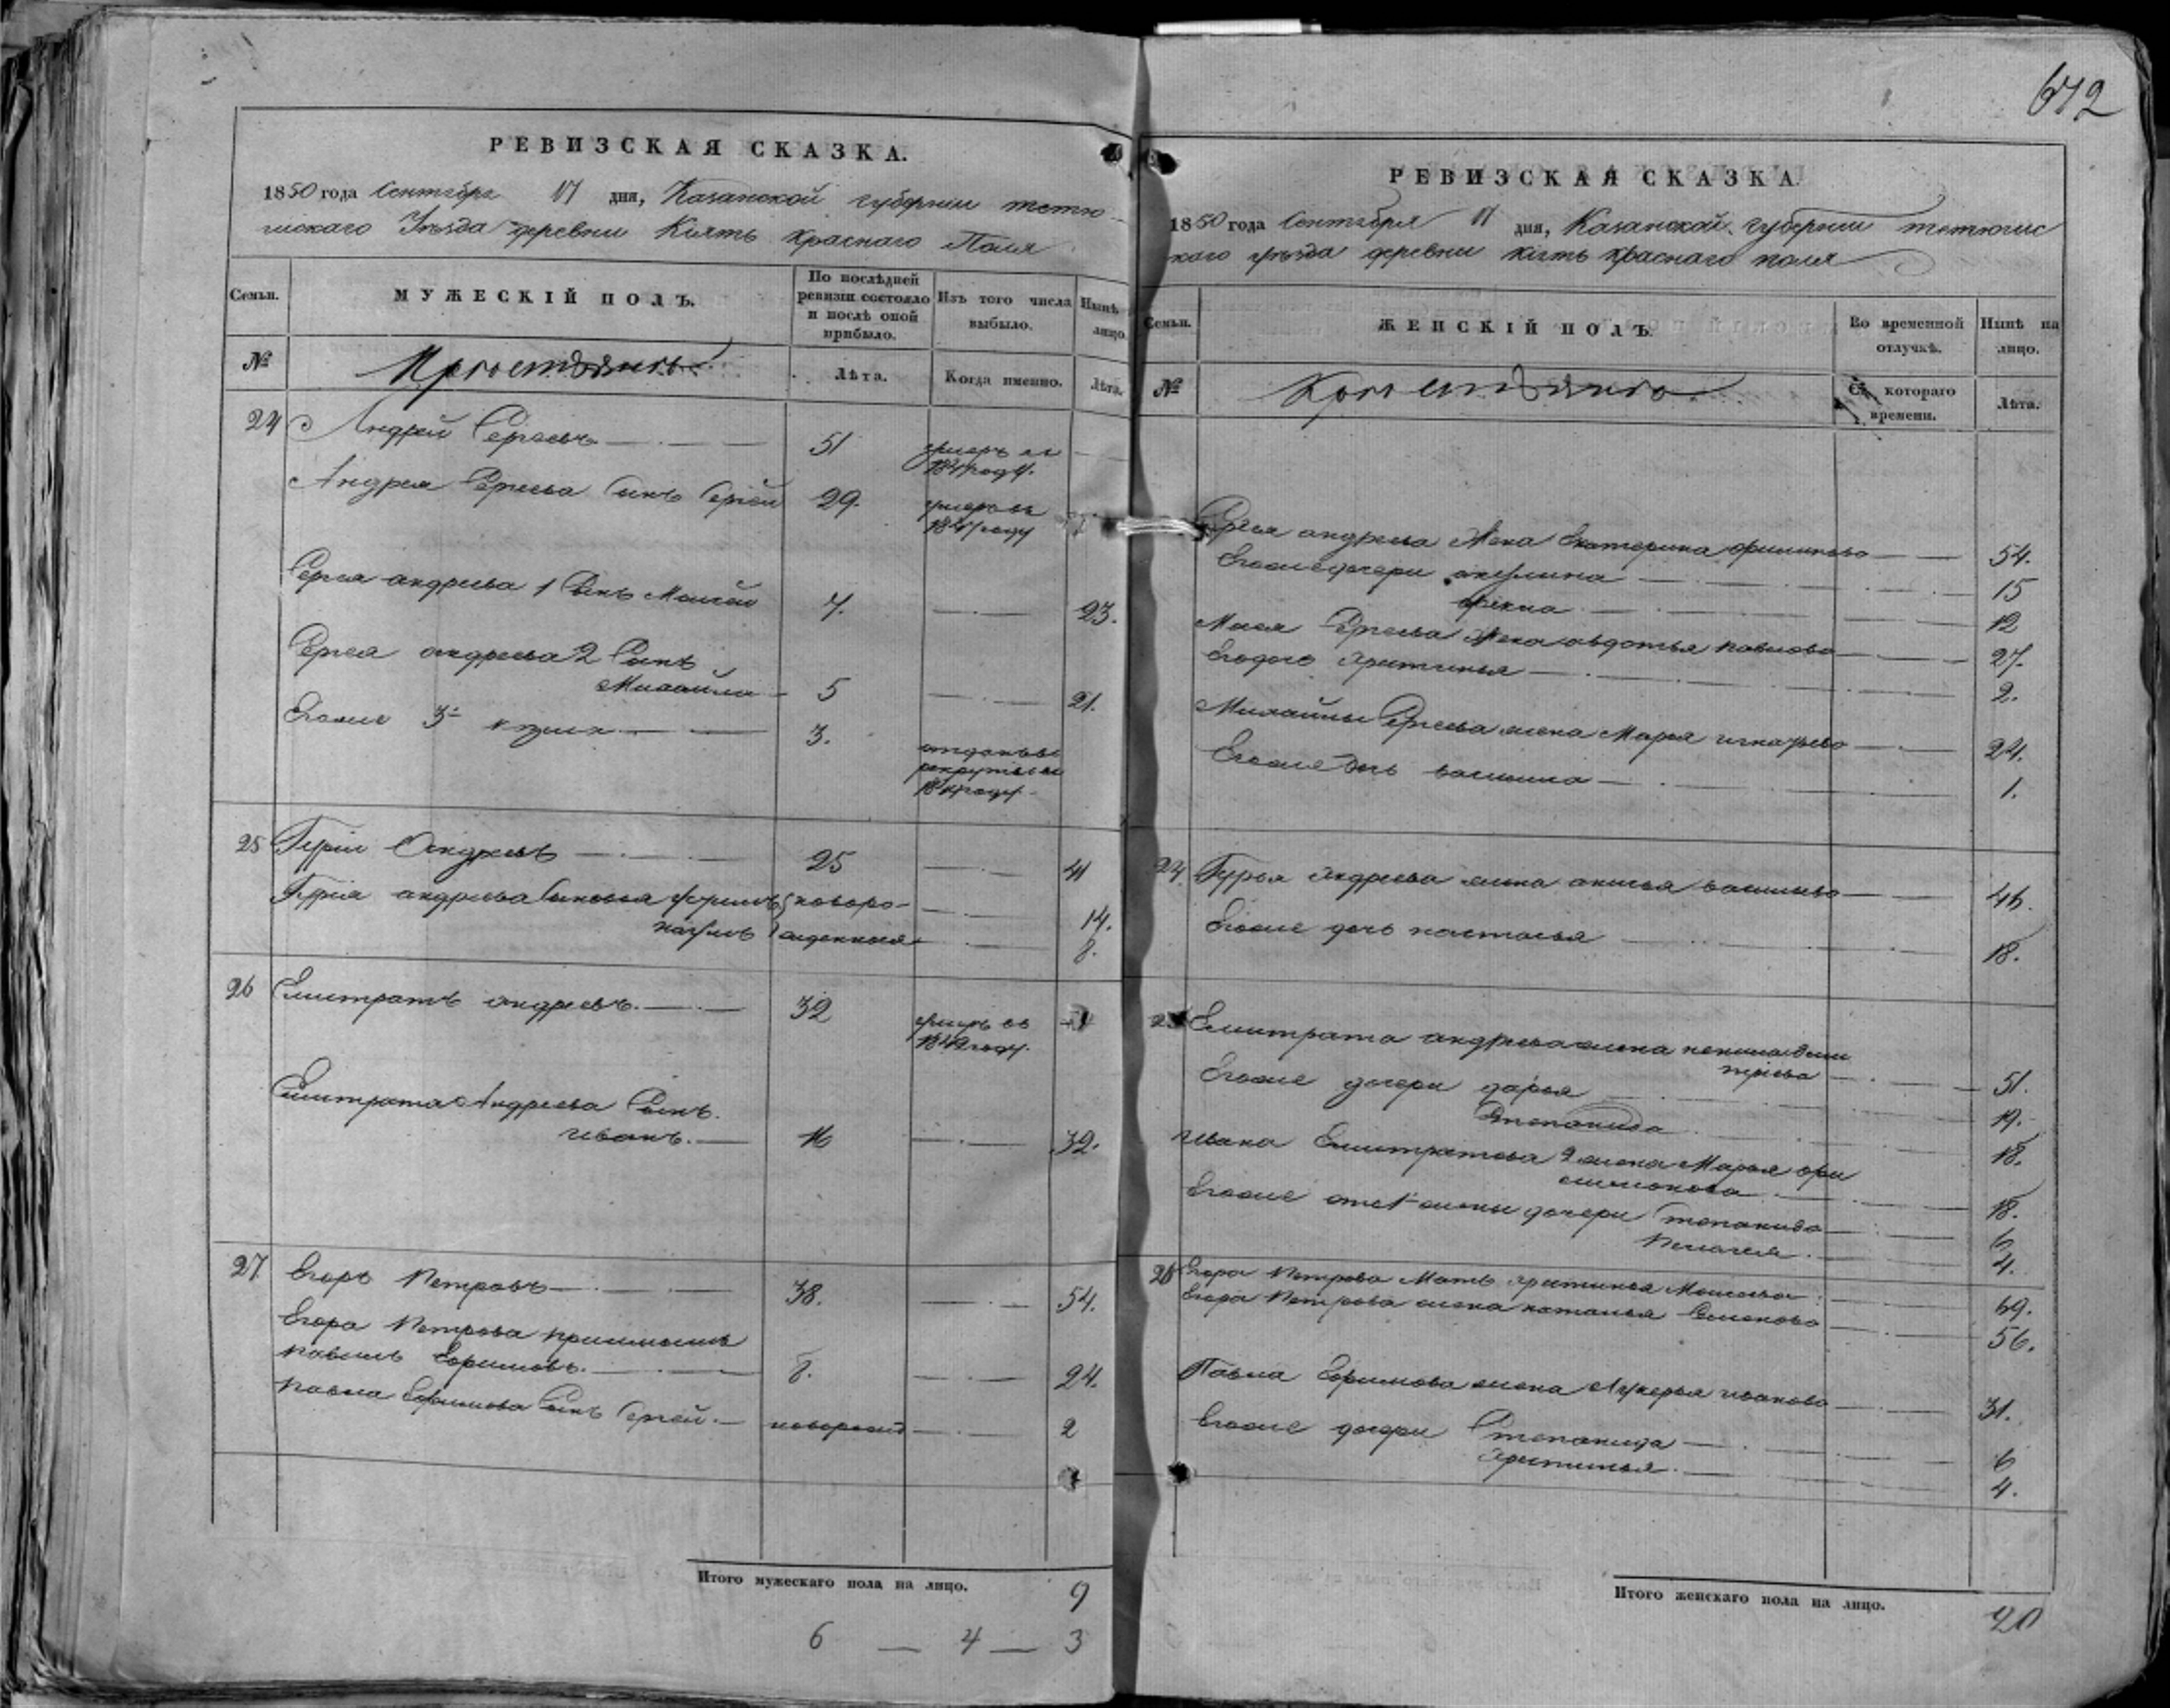 642
РЕВИЗСКАЯ СКАЗКА.
1850 года Сентября 17 дня, Казанской губернии тетю-
шскаго Уѣзда деревни Кіять Краснаго Поля
Семьи.
МУЖЕСКІЙ ПОЛЪ.
По послѣдней ревизіи состояло и послѣ оной прибыло.
Изъ того числа выбыло.
Нынѣ лицо.
№
Лѣта.
Когда именно.
Лѣта.
24 Андрей Сергѣевъ 51 умеръ въ
году.
Андрея Сергеева Сынъ Сергей 29. умеръ въ
году
Сергея андреева 1 Сынъ Моисей 7. 23.
Сергея андреева 2 Сынъ
Михайла 5 21.
Егоже 3й кузма 3. отданъ въ
рекруты въ
году.
25 Гурій Андреевъ 25 41
Гурія андреева Сыновья новоро-
14.
наумъ жденныя 8.
26 Емитратъ андреевъ. 32 умеръ въ
году.
Емитрата Андреева Сынъ.
иванъ. 16 32.
27 Егоръ Петровъ 38. 54.
Егора Петрова приимышъ
павелъ Ефимовъ. 8. 24.
павла Ефимова Сынъ Сергей. 2
Итого мужескаго пола на лицо. 9
6 — 4 — 3
РЕВИЗСКАЯ СКАЗКА.
1850 года Сентября 17 дня, Казанской губернии тетюшс
кого уѣзда деревни кіять краснаго поля
Семьи.
ЖЕНСКІЙ ПОЛЪ.
Во временной отлучкѣ.
Нынѣ на лицо.
№
Съ котораго времени.
Лѣта.
Сергея андреева Жена Екатерина 54.
Егоже дочери акулина 15
12
Моисея Сергеева Жена авдотья павлова 27.
Егодочь устинья 2.
Михайлы Сергеева жена Марья игнатьева 24.
Егоже дочь василиса 1.
24. Гурья андреева жена анисья васильева 46.
Егоже дочь настасья 18.
Емитрата андреева жена ненила дми
тріева 51.
Егоже дочери дарья 19.
Степанида 18.
ивана Емитратова 2 жена Марья
18.
Егоже отъ 1 жены дочери Степанида 6
пелагея. 4.
26 Егора Петрова Мать устинья Моисеева 69.
Егора Петрова жена наталья Семенова 56.
Павла Ефимова жена Лукерья иванова 31.
Егоже дочери Степанида 6
устинья. 4.
Итого женскаго пола на лицо. 20